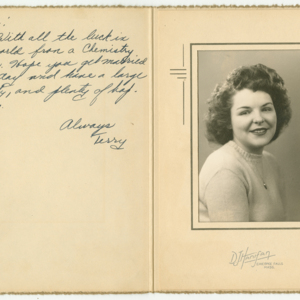 With all the luck in
world from a Chemistry
Hope you get married
day and have a large
and plenty of hap.
Always
Terry